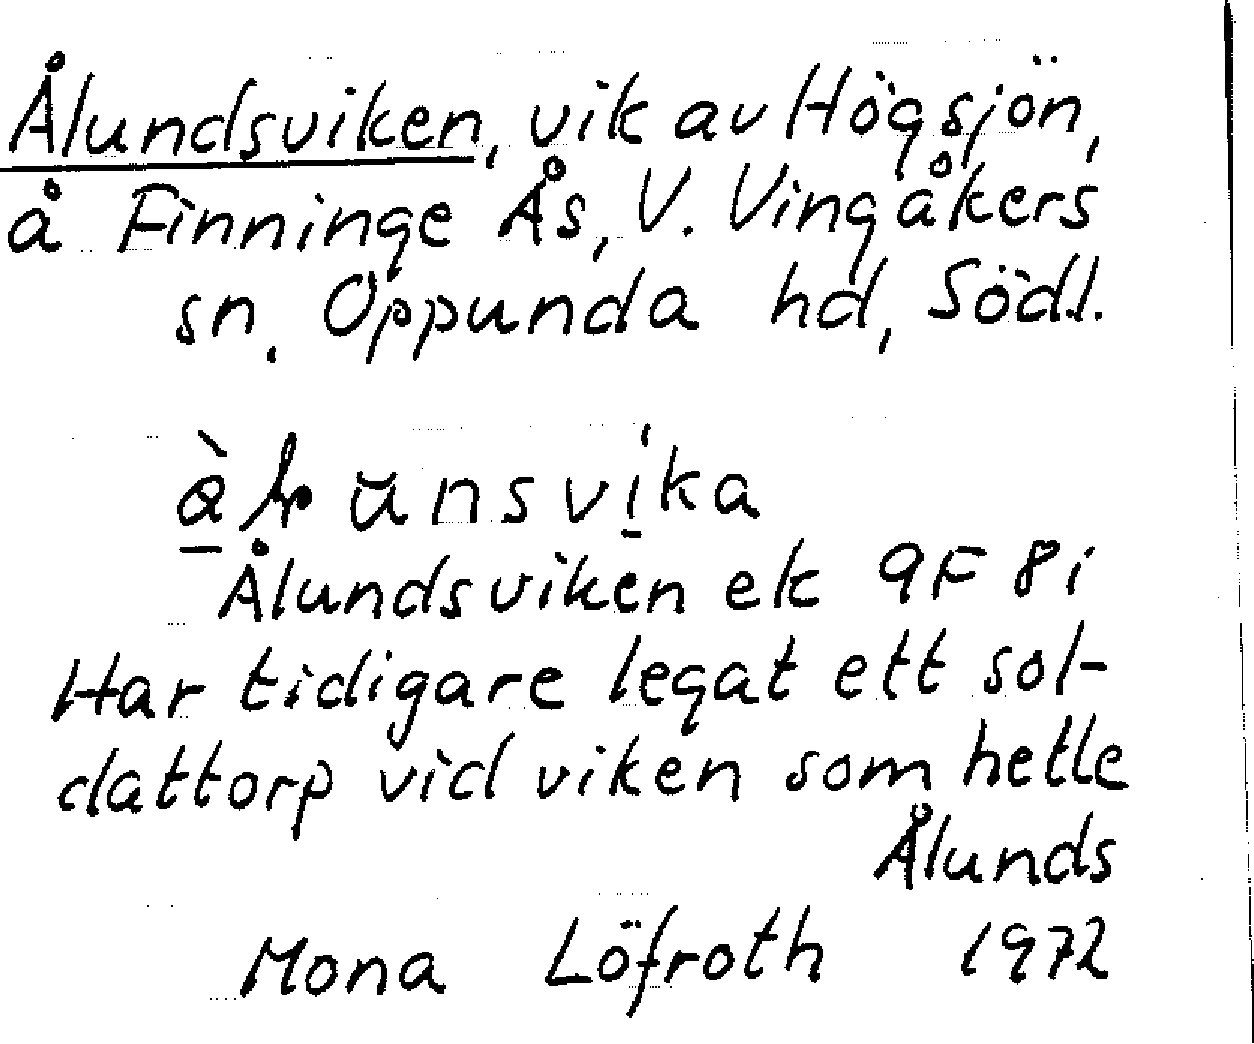 Ålundsviken, vik av Högsjön,
å Finninge Ås, V. Vingåkers
sn, Oppunda hd, Södl.
Ålundsviken ek 9F 8i
Har tidigare legat ett sol-
dattorp vid viken som hette
Ålunds
Mona Löfroth 1972